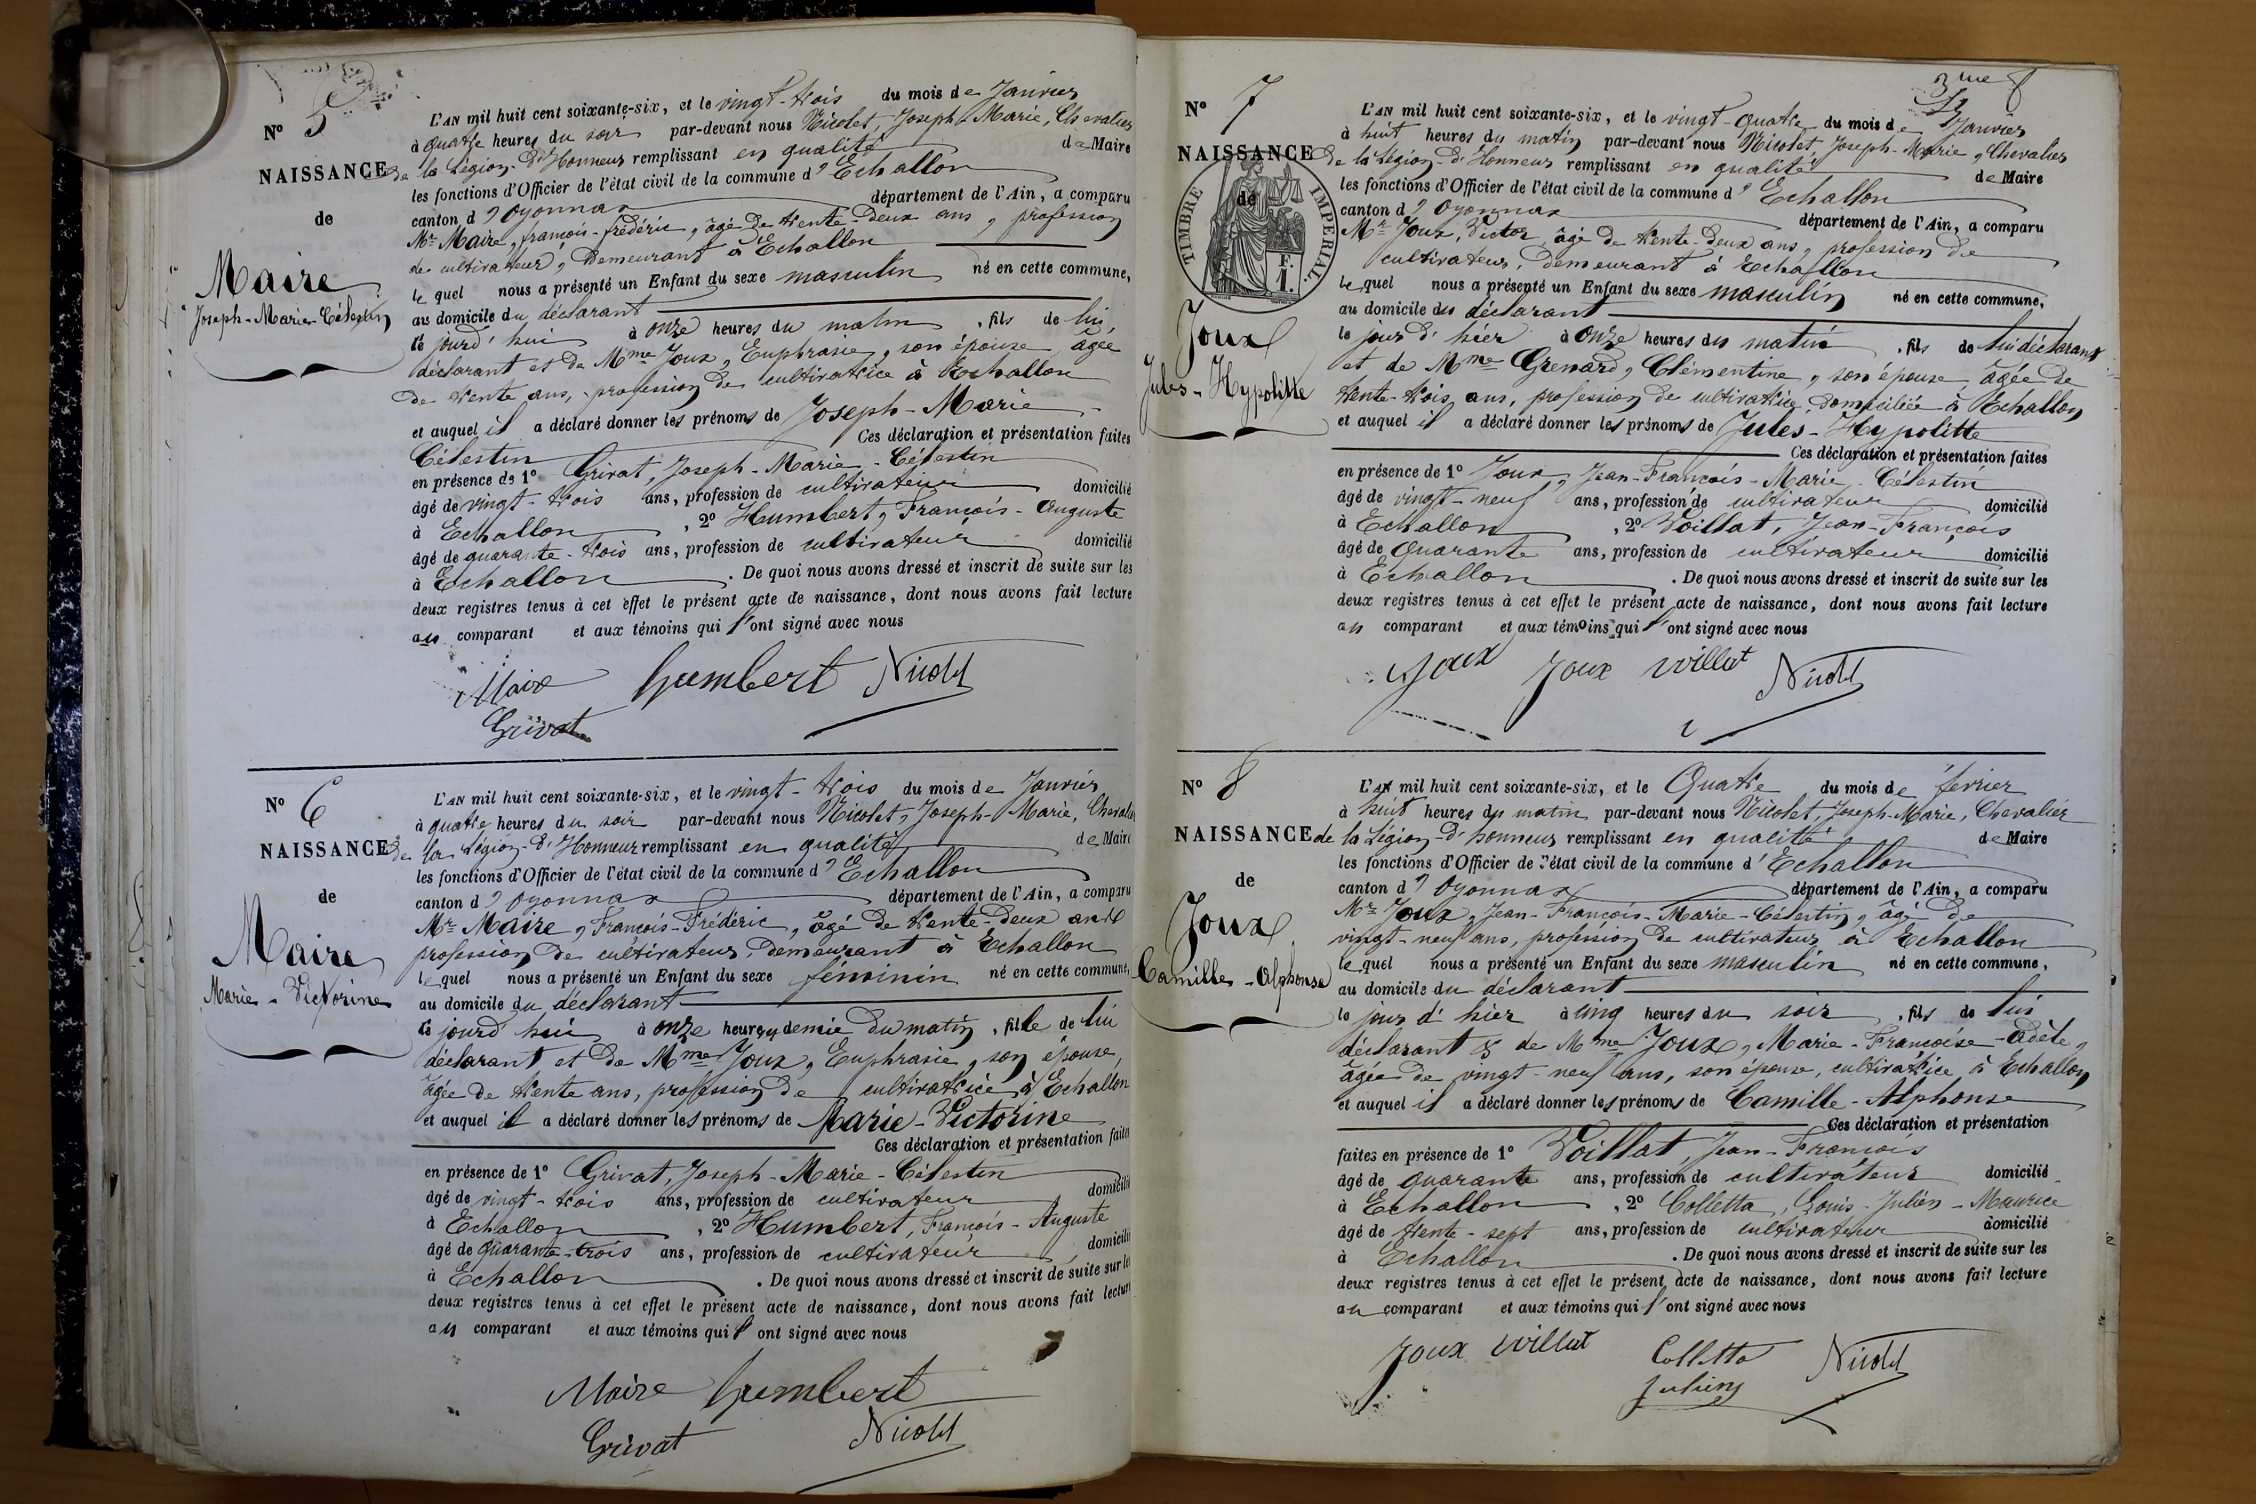 N° 5
NAISSANCE
de
Maire
Joseph-Marie-Célestin
L'AN mil huit cent soixante-six, et le vingt-trois du mois de Janvier
à quatre heures du soir par-devant nous Nicolet, Joseph-Marie, Chevalier
de la Légion-d'Honneur remplissant en qualité de Maire
les fonctions d'Officier de l'état civil de la commune d'Echallon
canton d'Oyonnax département de l'Ain, a comparu
Mr Maire, françois-frédéric, âgé de trente-deux ans, profession
de cultivateur, demeurant à Echallon
lequel nous a présenté un Enfant du sexe masculin né en cette commune,
au domicile du déclarant
ce jourd'hui à onze heures du matin, fils de lui
déclarant et de Mme Joux, Euphrasie, son épouse, âgée
de trente ans, profession de cultivatrice à Echallon
et auquel il a déclaré donner les prénoms de Joseph-Marie-
Célestin Ces déclaration et présentation faites
en présence de 1° Grivat, Joseph-Marie-Célestin
âgé de vingt-trois ans, profession de cultivateur domicilié
à Echallon, 2° Humbert, François-Auguste
âgé de quarante-trois ans, profession de cultivateur domicilié
à Echallon. De quoi nous avons dressé et inscrit de suite sur les
deux registres tenus à cet effet le présent acte de naissance, dont nous avons fait lecture
au comparant et aux témoins qui l'ont signé avec nous
Maire Humbert Nicolet
Grivat
N° 6
NAISSANCE
de
Maire
Marie-Victorine
L'AN mil huit cent soixante-six, et le vingt-trois du mois de Janvier
à quatre heures du soir par-devant nous Nicolet, Joseph-Marie, Chevalier
de la Légion-d'Honneur remplissant en qualité de Maire
les fonctions d'Officier de l'état civil de la commune d'Echallon
canton d'Oyonnax département de l'Ain, a comparu
Mr Maire, François-Frédéric, âgé de trente-deux ans
profession de cultivateur, demeurant à Echallon
lequel nous a présenté un Enfant du sexe féminin né en cette commune,
au domicile du déclarant
ce jourd'hui à onze heures et demie du matin, fille de lui
déclarant et de Mme Joux, Euphrasie, son épouse,
âgée de trente ans, profession de cultivatrice à Echallon
et auquel il a déclaré donner les prénoms de Marie-Victorine
Ces déclaration et présentation faites
en présence de 1° Grivat, Joseph-Marie-Célestin
âgé de vingt-trois ans, profession de cultivateur domicilié
à Echallon, 2° Humbert, François-Auguste
âgé de quarante-trois ans, profession de cultivateur domicilié
à Echallon. De quoi nous avons dressé et inscrit de suite sur les
deux registres tenus à cet effet le présent acte de naissance, dont nous avons fait lecture
au comparant et aux témoins qui l'ont signé avec nous
Maire Humbert
Grivat Nicolet
3me f
N° 7
NAISSANCE
de
TIMBRE IMPERIAL.
F.
1.
Joux
Jules-Hypolitte
L'AN mil huit cent soixante-six, et le vingt-quatre du mois de Janvier
à huit heures du matin par-devant nous Nicolet, Joseph-Marie, Chevalier
de la Légion-d'Honneur remplissant en qualité de Maire
les fonctions d'Officier de l'état civil de la commune d'Echallon
canton d'Oyonnax département de l'Ain, a comparu
Mr Joux, Victor, âgé de trente-deux ans, profession de
cultivateur, demeurant à Echallon
lequel nous a présenté un Enfant du sexe masculin né en cette commune,
au domicile du déclarant
le jour d'hier à onze heures du matin, fils de lui déclarant
et de Mme Grenard, Clémentine, son épouse, âgée de
trente-trois ans, profession de cultivatrice, domiciliée à Echallon
et auquel il a déclaré donner les prénoms de Jules-Hypolitte
Ces déclaration et présentation faites
en présence de 1° Joux, Jean-François-Marie-Célestin
âgé de vingt-neuf ans, profession de cultivateur domicilié
à Echallon, 2° Voillat, Jean-François
âgé de quarante ans, profession de cultivateur domicilié
à Echallon. De quoi nous avons dressé et inscrit de suite sur les
deux registres tenus à cet effet le présent acte de naissance, dont nous avons fait lecture
au comparant et aux témoins qui l'ont signé avec nous
Joux Joux voillat Nicolet
N° 8
NAISSANCE
de
Joux
Camille-Alphonse
L'AN mil huit cent soixante-six, et le Quatre du mois de février
à huit heures du matin par-devant nous Nicolet, Joseph-Marie, Chevalier
de la Légion-d'honneur remplissant en qualité de Maire
les fonctions d'Officier de l'état civil de la commune d'Echallon
canton d'Oyonnax département de l'Ain, a comparu
Mr Joux, Jean-François-Marie-Célestin, âgé de
vingt-neuf ans, profession de cultivateur à Echallon
lequel nous a présenté un Enfant du sexe masculin né en cette commune,
au domicile du déclarant
le jour d'hier à cinq heures du soir, fils de lui
déclarant & de Mme Joux, Marie-Françoise-Adèle,
âgée de vingt-neuf ans, son épouse, cultivatrice, à Echallon
et auquel il a déclaré donner les prénoms de Camille-Alphonse
Ces déclaration et présentation
faites en présence de 1° Voillat, Jean-François
âgé de quarante ans, profession de cultivateur domicilié
à Echallon, 2° Colletta, Louis-Julien-Maurice
âgé de trente-sept ans, profession de cultivateur domicilié
à Echallon. De quoi nous avons dressé et inscrit de suite sur les
deux registres tenus à cet effet le présent acte de naissance, dont nous avons fait lecture
au comparant et aux témoins qui l'ont signé avec nous
Joux voillat Colletta Nicolet
Julien